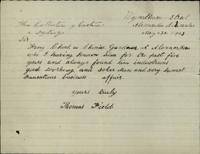 Wyndham Street
Alexandria
May 23 1903
The Collector of Customs
Sydney
Sir
Chinese Gardener at Alexandria
having known him for the past five
years and always found him industrious
good working and sober man and very honest
transactions business affair
Yours truly
Thomas Field